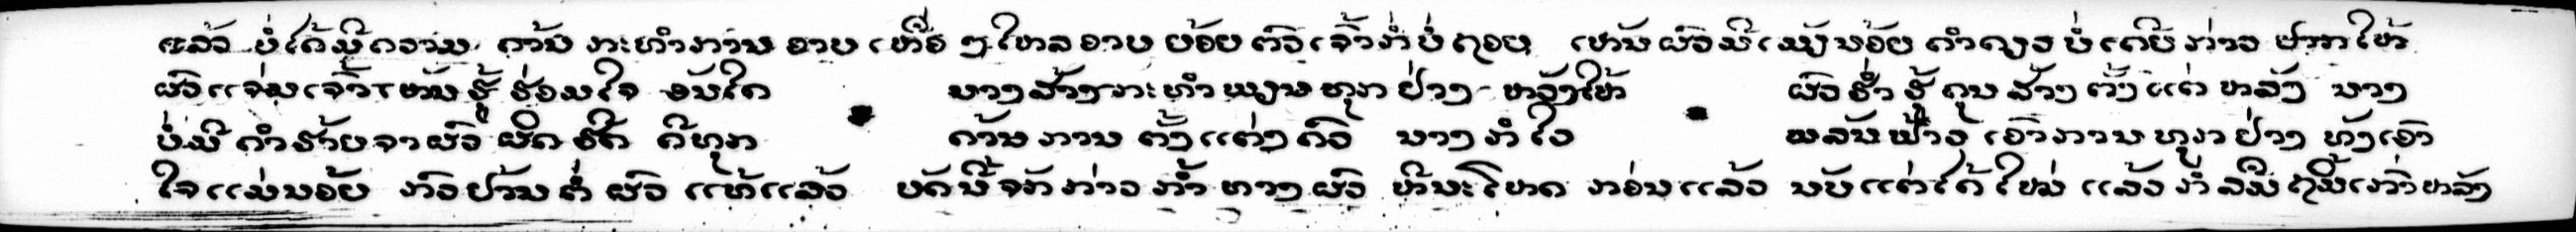 ແລ້ວ ບໍ່ໄດ້ມີຄວາມ ຄ້ານ ກະທຳການ ອາບ ເຫື່ອ ໆ ໄຫລ ອາບ ຍ້ອຍ ຕົວ ເຈົ້າ ກໍ່ ບໍ່ ຖອຍ ເຫັນ ຜົວ ມີ ເມຽ ນ້ອຍ ຄຳ ດຽວ ບໍ່ ເຄີຍ ກ່າວ ປາກ ໃຫ້
ຜົວ ແຈ່ມ ເຈົ້າ ຫັນ ຮູ້ ຮ່ອມ ໃຈ ອັນໃດ ນາງ ສ້າງ ກະທຳ ພຽນ ທຸກ ຢ່າງ ຫວັງ ໃຫ້ ຜົວ ຮ່ຳ ຮູ້ ຄຸນ ສ້າງ ຕັ້ງ ແຕ່ ຫລັງ ນາງ
ບໍ່ ມີ ຄຳ ຮ້າຍ ຈາ ຜົວ ຜິດ ຮີດ ຄີ ທຸກ ດ້ານ ການ ຕັ້ງ ແຕ່ງ ຄົວ ນາງ ກໍ ໄວ ພລັນ ຟ້າວ ເອົາ ການ ທຸກ ຢ່າງ ທັງ ເອົາ
ໃຈ ແມ່ ນ້ອຍ ກົວ ຢ້ານ ຕໍ່ ຜົວ ແທ້ ແລ້ວ ບັດນີ້ ຈັກ ກ່າວ ກ້ຳ ທາງ ຜົວ ຫີນະໂຫດ ກ່ອນ ແລ້ວ ນັບ ແຕ່ ໄດ້ ໃໝ່ ແລ້ວ ກໍ່ ລືມ ຖິ້ມ ເກົ່າ ຫລັງ